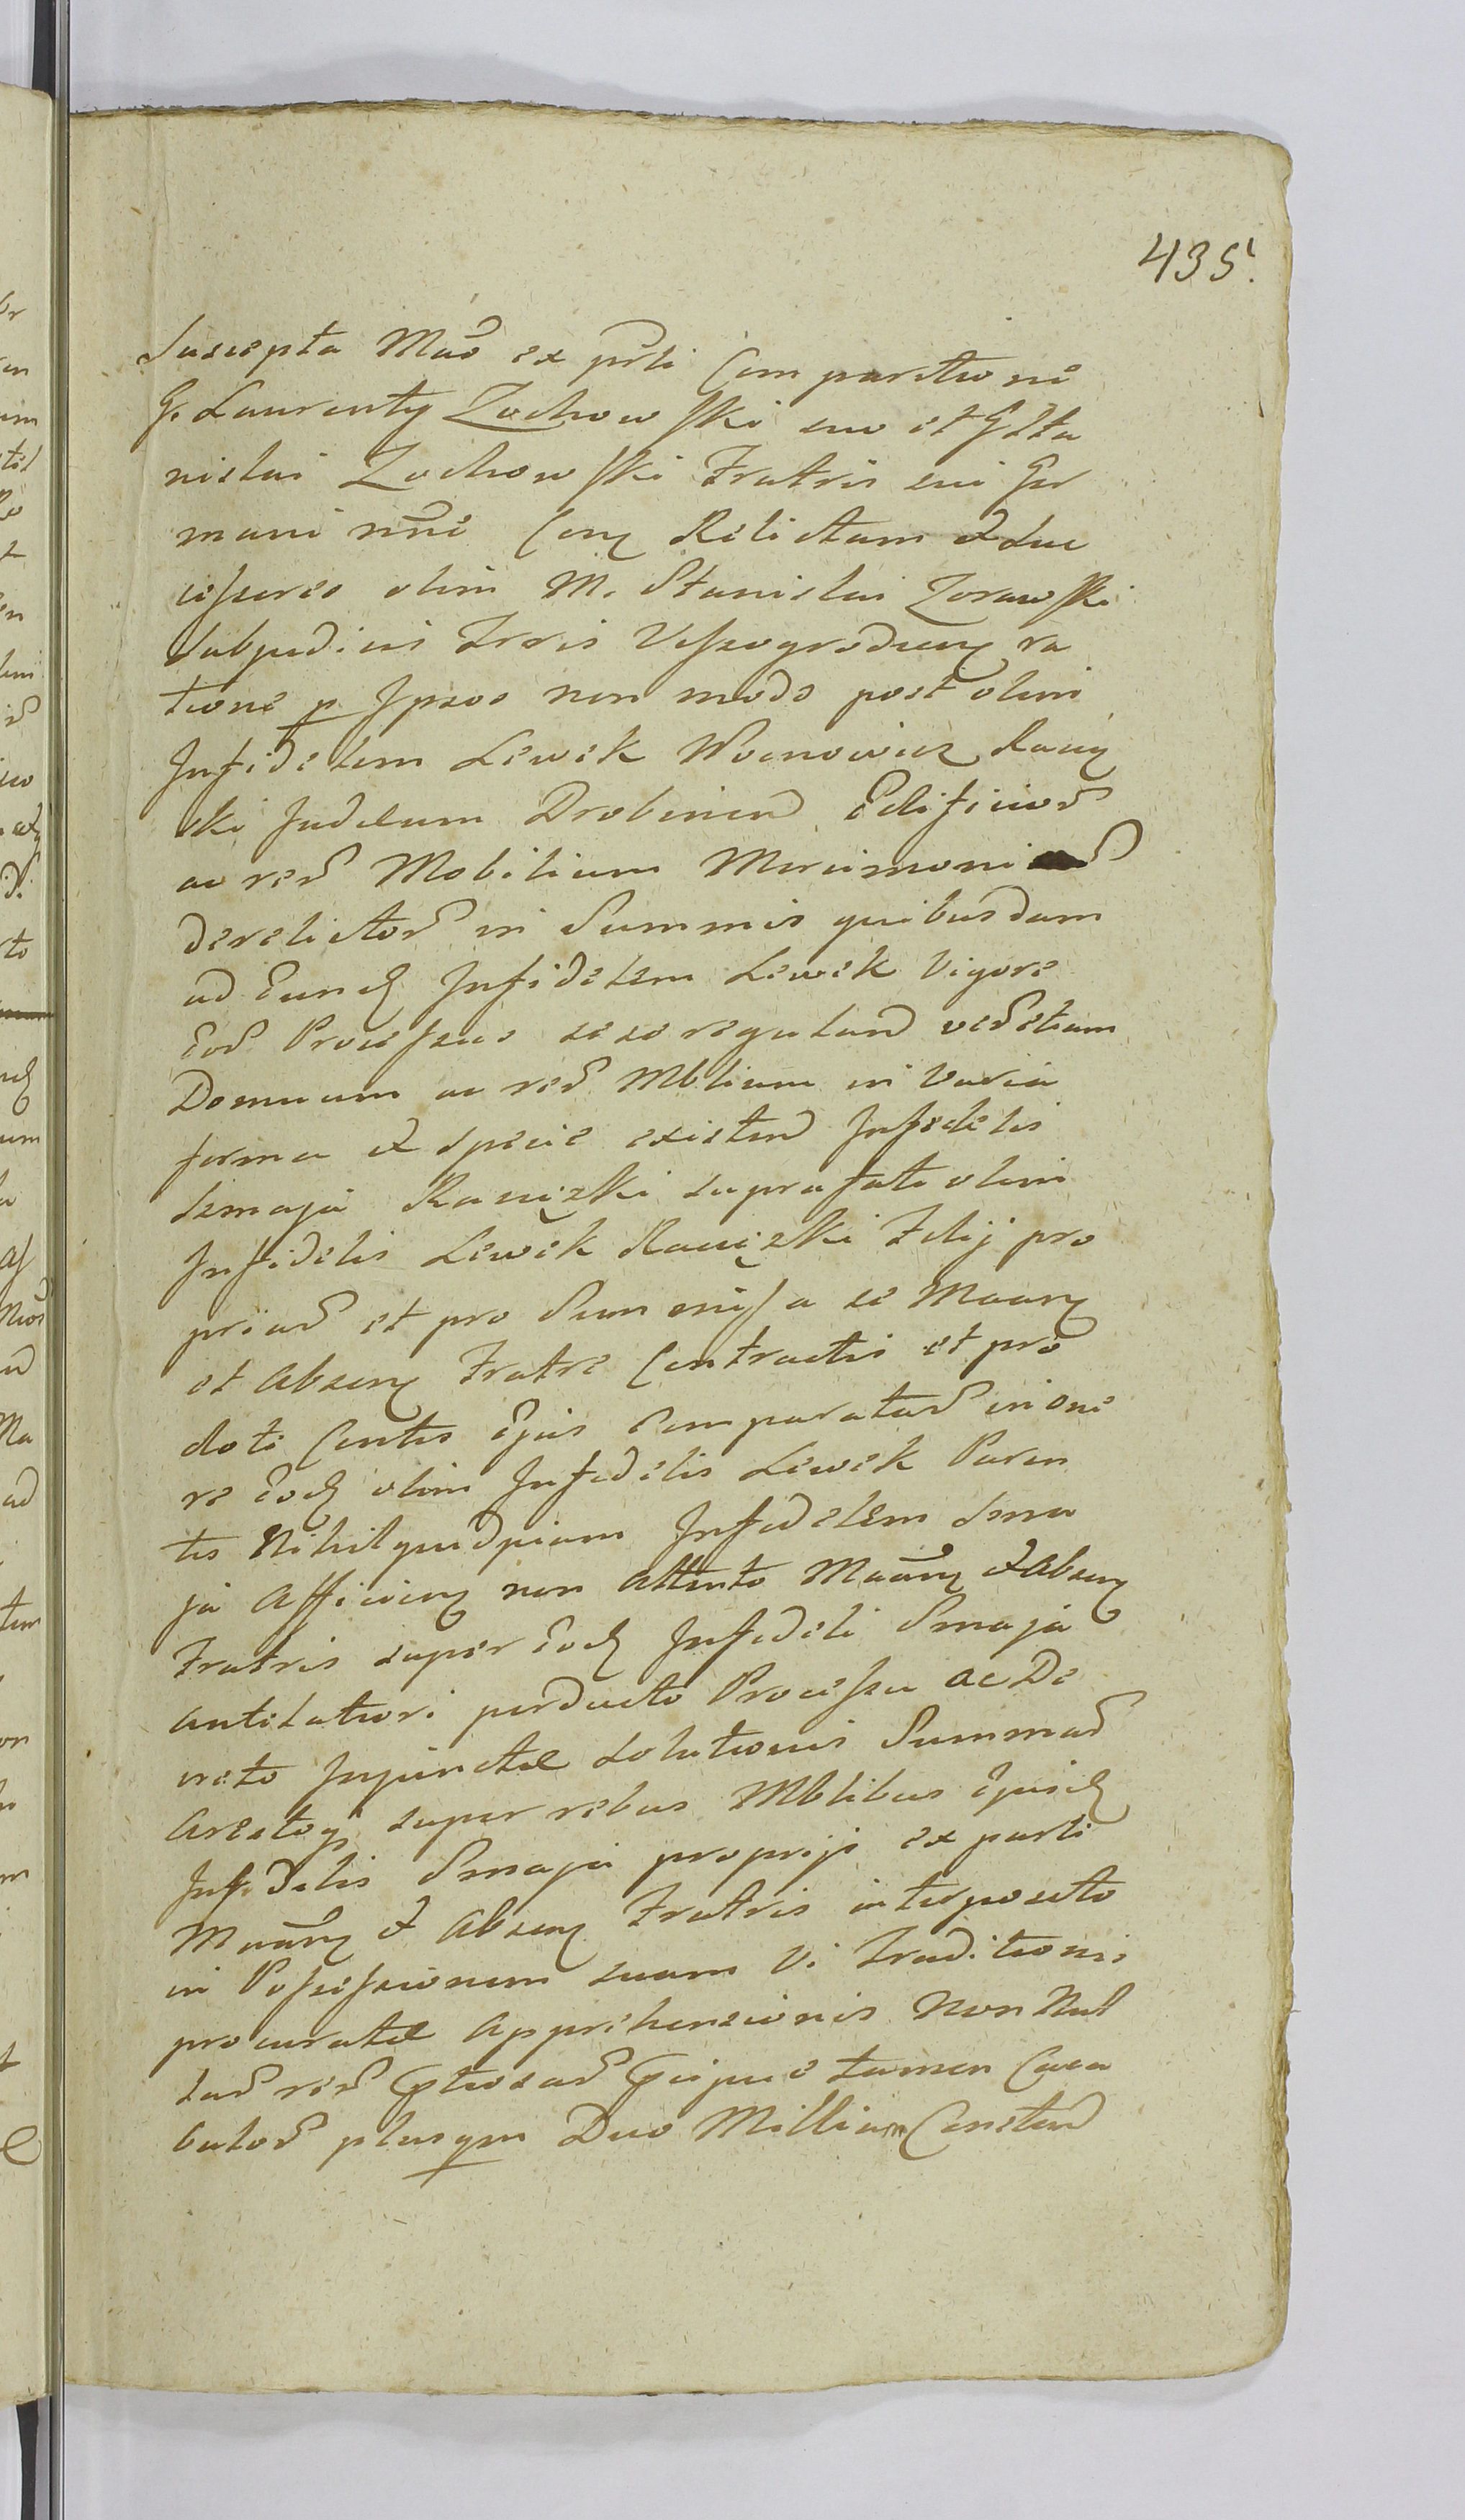 435.
Suscepta Mao ex prli Comparitione
G. Laurenty Zochowski suo et G Sta
nislai Zochowski Fratris sui Ger
mani nne Conz Relictam et Suc
cessores olim M. Stanislai Zorawski
Subjudicis Trris Vissogroduenz ra
tione p Ipsos non modo post olim
Infidelem Lewek Woenowicz Raciz
ski Judeum Drobinen Edificior
ac rer Mobilium Mercimoni
derelictor in Summis quibusdam
ad Eund Infidelem Lewek Vigore
Eor Processus sese regulan ver etiam
Domuum ac rer Mblium in Varia
forma et specie existen Infidelis
Szmaja Raciązki supra fati olim
Infidelis Lewek Raciązki Filij pro
priar et pro Summissa se Maanz
et Absenz Fratre Contractis et pro
doti Contis Ejus Comparatar in one
re Eod olim Infidelis Lewek Paren
tis Nihil quidpiam Infidelem Sma
ja Afficienz non Attento Maanz et Absenz
Fratris super Eod Infideli Smaja
antilatiori perducto Processu ac De
creto Injunctæ Solutionis Summar
Arestoq super rebus Mblibus Ejusd
Infidelis Smaja proprijs ex parti
Maanz et Absenz Fratris interposito
in Possessionem suam Vi Traditionis
procuratæ Apprehensionis Non Nul
lar rer ptiosar pcipue tamen Cara
bulor plusqm Duo Millium Consten